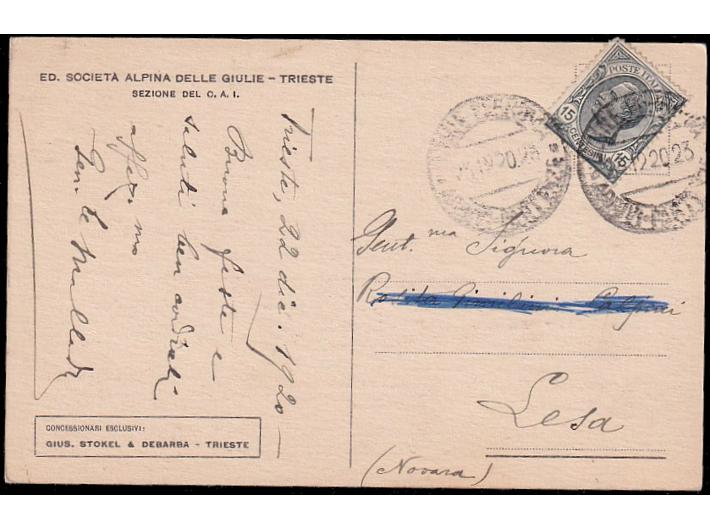 ED. SOCIETÀ ALPINA DELLE GIULIE – TRIESTE
SEZIONE DEL C. A. I.
Trieste, 22 dic. 1920 –
Buone feste e
saluti ben cordiali
affez.mo
CONCESSIONARI ESCLUSIVI:
GIUS. STOKEL & DEBARBA - TRIESTE
POSTE ITALIANE
15 CENTESIMI 15
12 20 23
Gent.ma Signora
Lesa
(Novara)